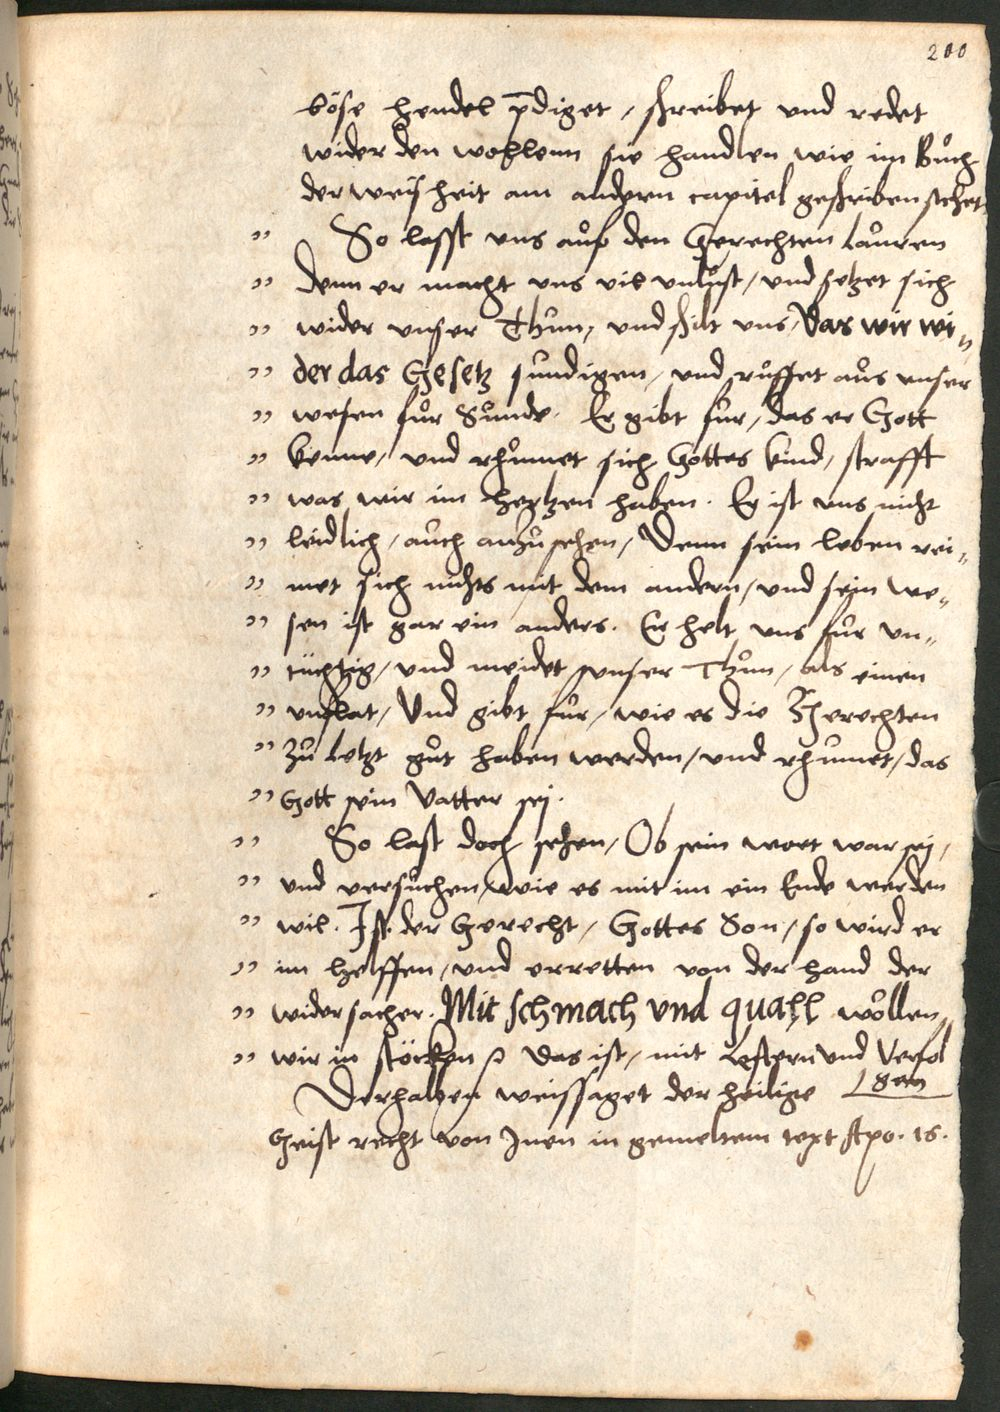 200
böse hendel p̄diget / schreibet und redet
wider den wohlenn sie handlen wie im Buch
der weisheit am andern capitel geschriben stehet
" So lasst uns auff den Gerechten lauren
" denn er macht uns vil unlust / und setzet sich
" wider unser Thun, und schilt uns, Das wir wi„
" der das Gesetz sundigen / und ruffet aus unser
" wesen für Sunde. Er gibt für, das er Gott
" kenne, und rhümet sich Gottes kind, strafft
" was wir im hertzen haben. Er ist uns nicht
" leidlich, auch anzusehen, Denn sein leben rei„
" met sich nichts mit dem andern, und sein we„
" sen ist gar ein anders. Er helt uns für un„
" tüchtig, und meidet unser Thun, als einen
" unflat, Und gibt für, wie es die Gerechten
" zu letzt gut haben werden, und rhümet, das
" Gott sein Vatter sej.
" So last doch sehen, Ob sein wort war sej,
" und versuchen, wie es mit im ein Ende werden
" wil. Ist der Gerecht, Gottes Son, so wird er
" im helffen, und erretten von der hand der
" widersacher. Mit schmach und quahl wöllen
" wir in stöcken ꝛ das ist, mit Lestern und Verfol
gen
Derhalben weissaget der heilige
Geist recht von Inen in gemeltem text Apo. 16.